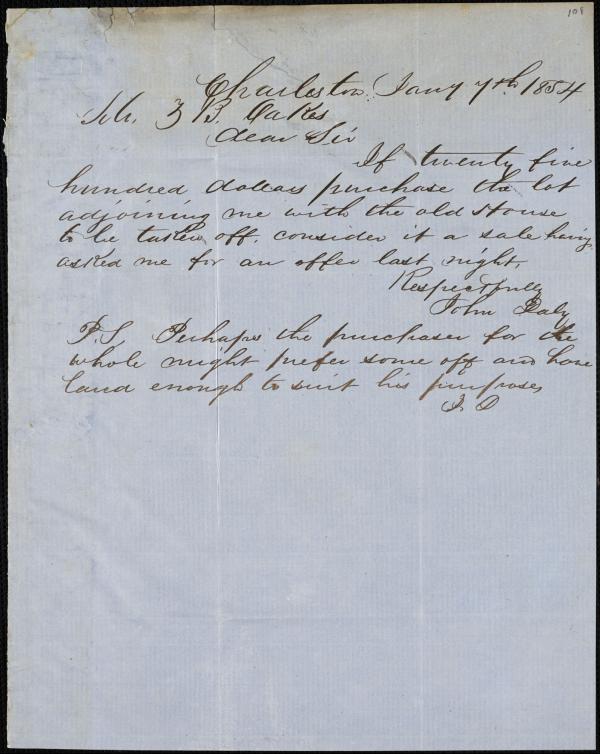 108
Charleston Jany 7th 1854
Mr. Z B. Oakes
Dear Sir
If twenty five
hundred dollars purchase the lot
adjoining me with the old House
to be taken off. consider it a sale having
asked me for an offer last night,
Respectfully
John Daly
P.S. Perhaps the purchaser for the
whole might prefer some off and have
land enough to suit his purposes
J. D